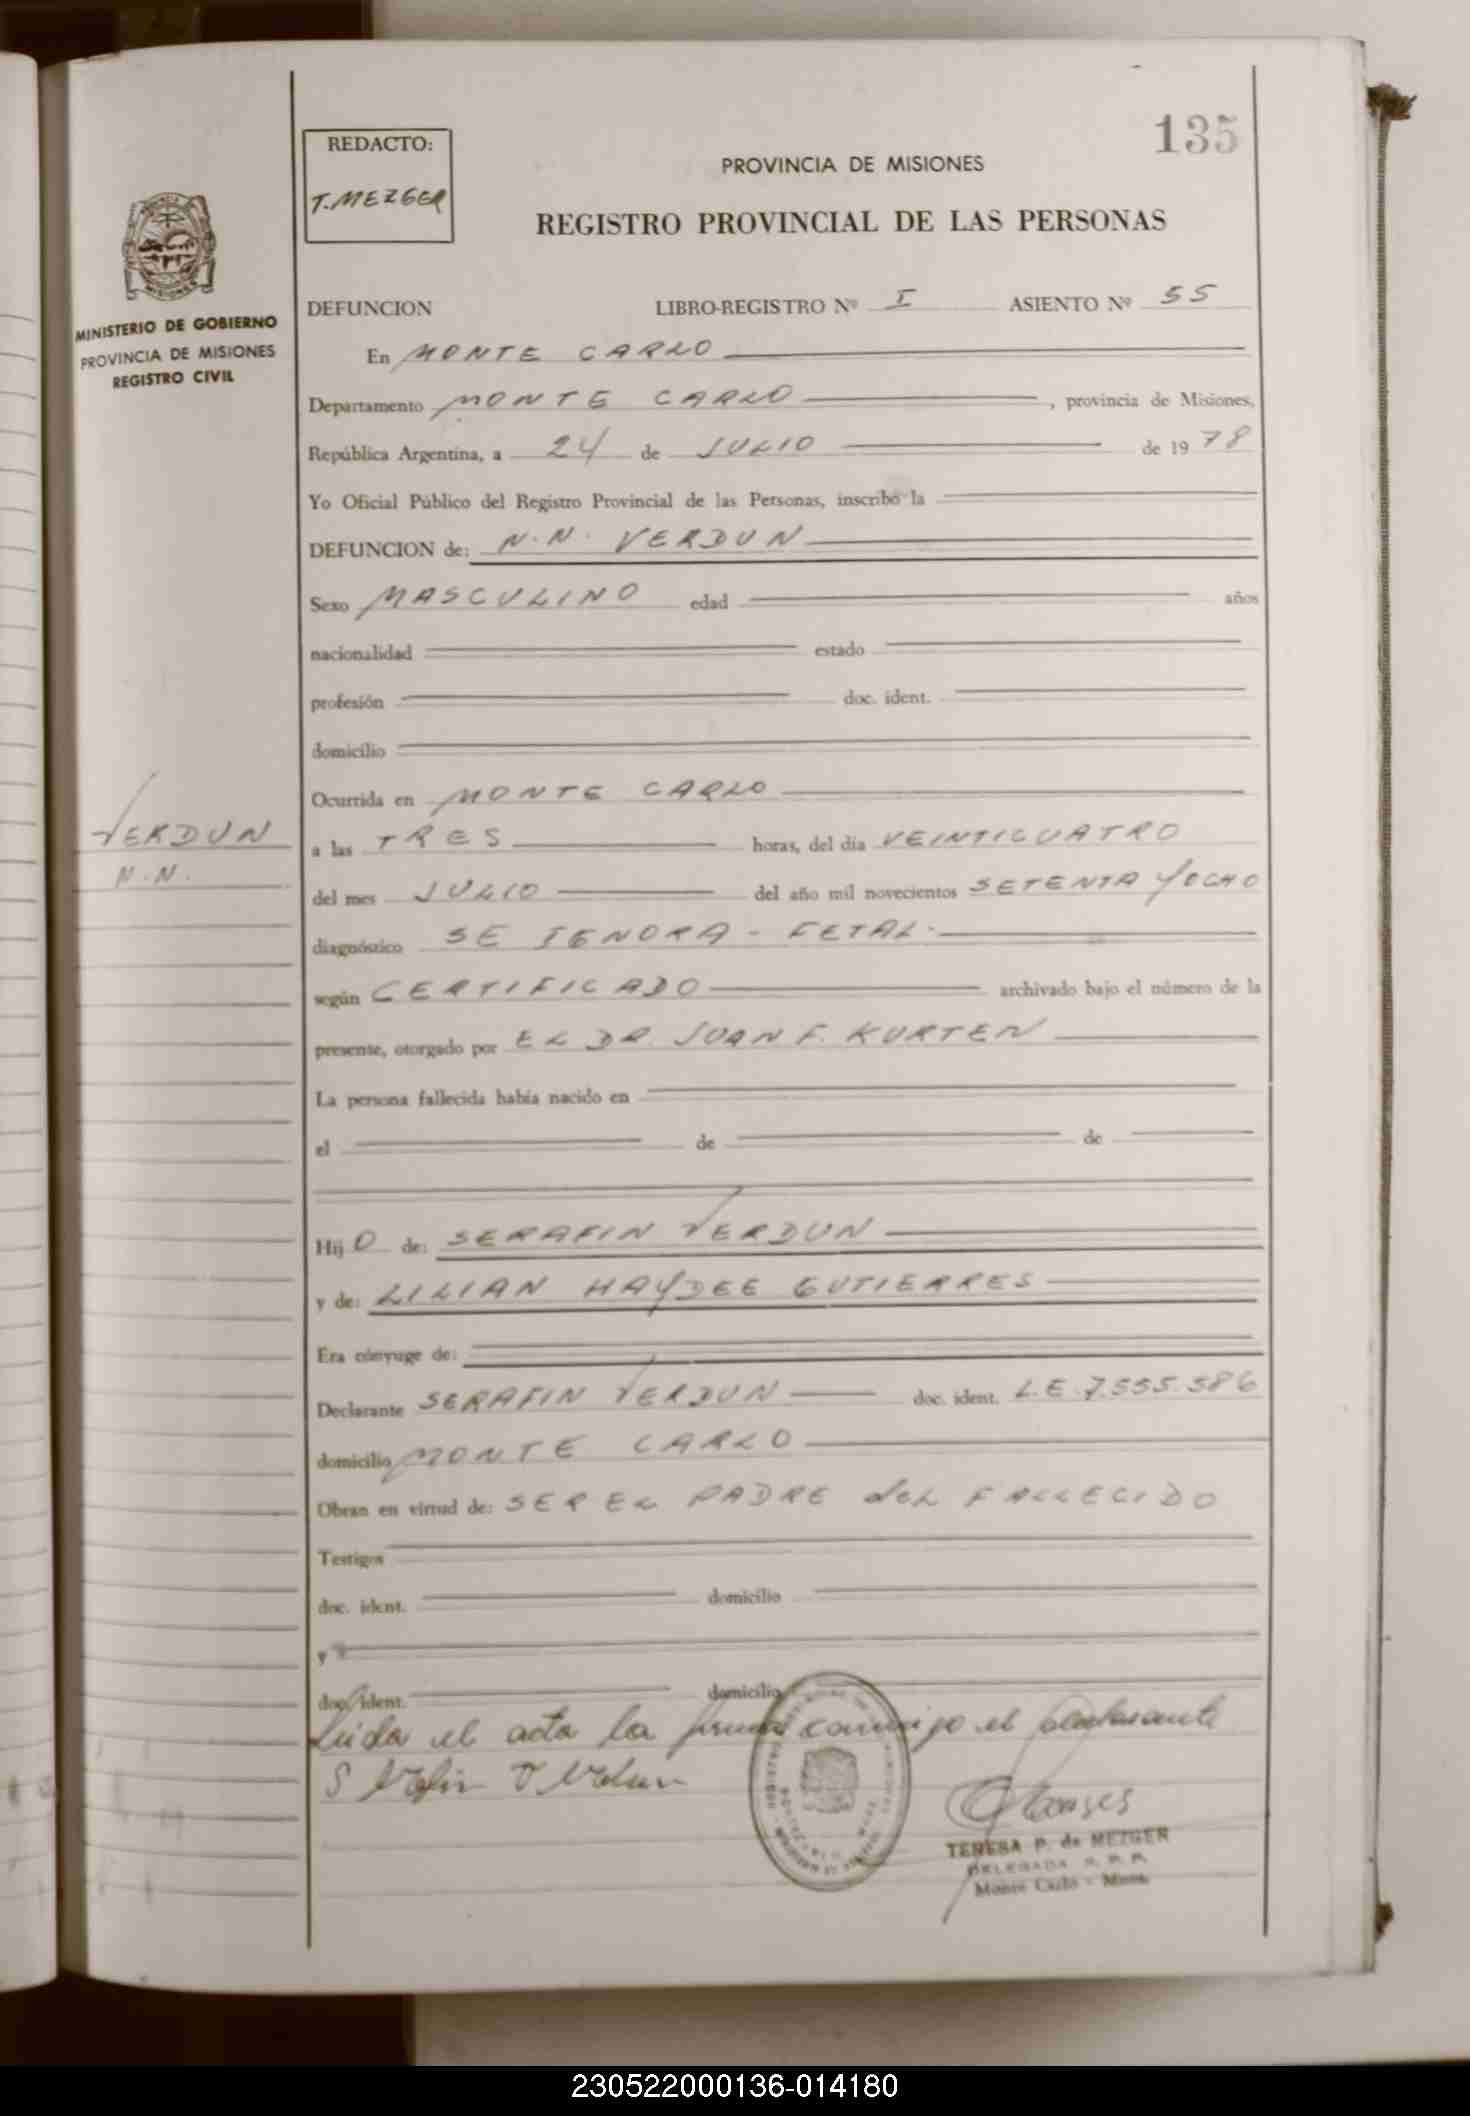 135
REDACTO:
T. MEZGER
PROVINCIA DE MISIONES
REGISTRO PROVINCIAL DE LAS PERSONAS
MINISTERIO DE GOBIERNO
PROVINCIA DE MISIONES
REGISTRO CIVIL
DEFUNCION LIBRO-REGISTRO Nº I ASIENTO Nº 55
En MONTE CARLO
Departamento MONTE CARLO, provincia de Misiones,
República Argentina, a 24 de JULIO de 1978
Yo Oficial Público del Registro Provincial de las Personas, inscribo la
DEFUNCION de: N.N. VERDUN
Sexo MASCULINO edad años
nacionalidad estado
profesión doc. ident.
domicilio
Ocurrida en MONTE CARLO
VERDUN
N.N.
a las TRES horas, del día VEINTICUATRO
del mes JULIO del año mil novecientos SETENTA Y OCHO
diagnóstico SE IGNORA - FETAL.
según CERTIFICADO archivado bajo el número de la
presente, otorgado por EL DR. JUAN F. KURTEN
La persona fallecida había nacido en
el de de
Hij O de: SERAFIN VERDUN
y de: LILIAN HAYDEE GUTIERRES
Era cónyuge de:
Declarante SERAFIN VERDUN doc. ident. L.E. 7.555.586
domicilio MONTE CARLO
Obran en virtud de: SER EL PADRE del FALLECIDO
Testigos
doc. ident. domicilio
y
doc. ident. domicilio
Leida el acta la firma conmigo el declarante
TERESA P. de MEZGER
DELEGADA R. P. P.
Monte Carlo - Mnes.
230522000136-014180